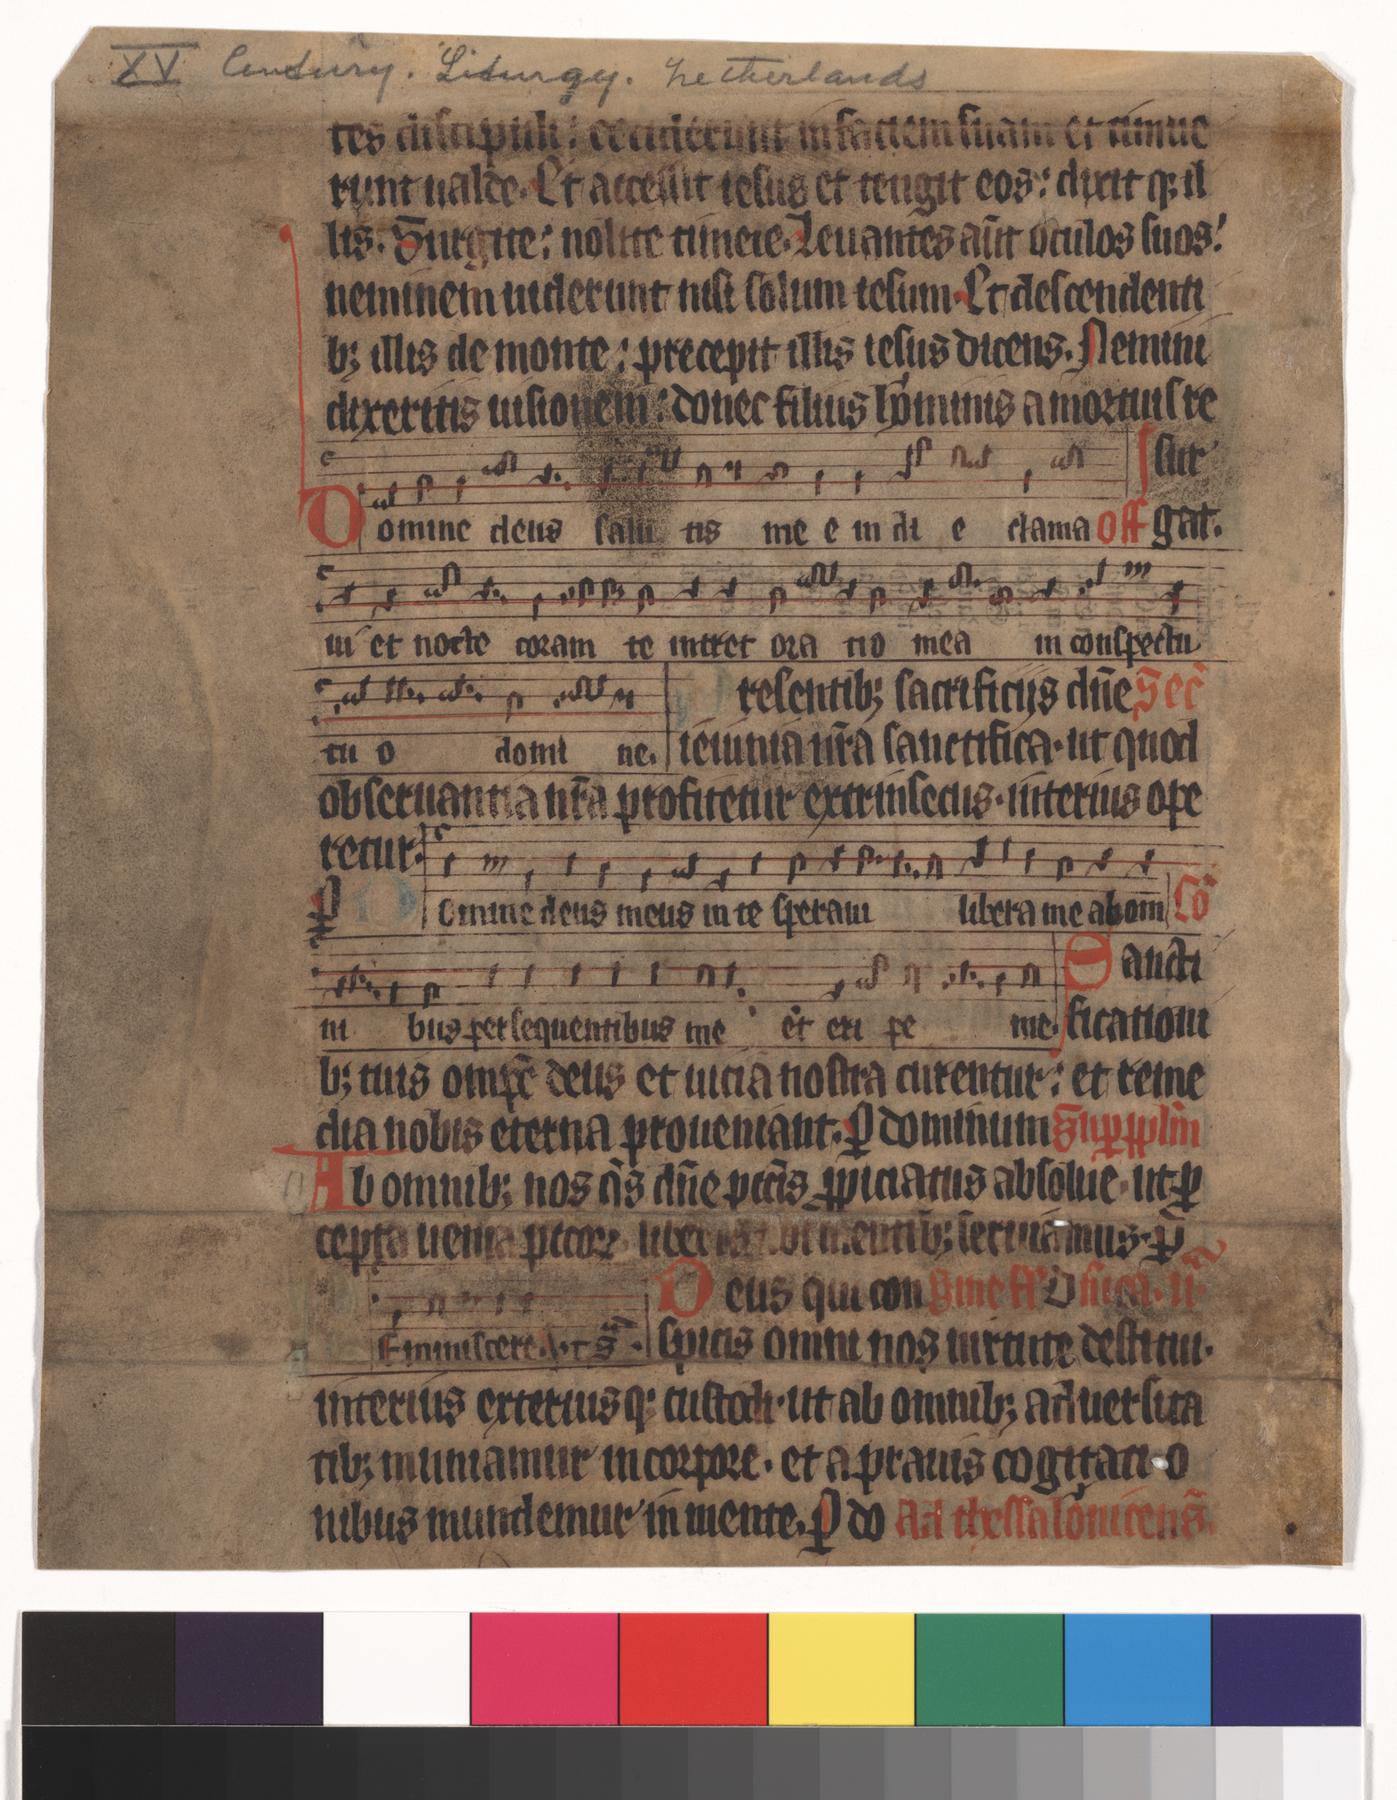 XV Century. Liturgy. Netherlands
tes discipuli: ceciderunt in faciem suam et timue
runt ualde. Et accessit iesus et tetigit eos: dixit q; il
lis. Surgite: nolite timere. Leuantes aūt oculos suos:
neminem uiderunt nisi solum iesum. Et descendenti
b; illis de monte: precepit illis iesus dicens. Nemini
dixeritis uisionem: donec filius hominis a mortuis re
sur
Domine deus salu tis me e in di e clama off gat.
ui et nocte coram te intret ora tio mea in conspectu
resentib; sacrificijs dn̄e Sec̄
tu o domi ne. ieiunia nr̄a sanctifica. ut quod
obseruantia nr̄a profitetur extrinsecus. interius ope
retur. P
Domine deus meus in te speraui libera me ab om Cō
Sancti
ni bus persequentibus me et eri pe me. ficationi
b; tuis omp̄s deus et uicia nostra curentur: et reme
dia nobis eterna proueniant. P dominum Sup pplm̄
Ab omnib; nos q̄s dn̄e pctīs ppiciatus absolue. ut p
cepta uenia pctor̄ liberis mentib; seruiamus. P
Deus qui con
Eminiscere. Vt s̄ spicis omni nos uirtute destitui.
interius exteriusq; custodi. ut ab omnib; aduersita
tib; muniamur in corpore. et a prauis cogitati o
nibus mundemur in mente. P do Ad thessalonicens̄.